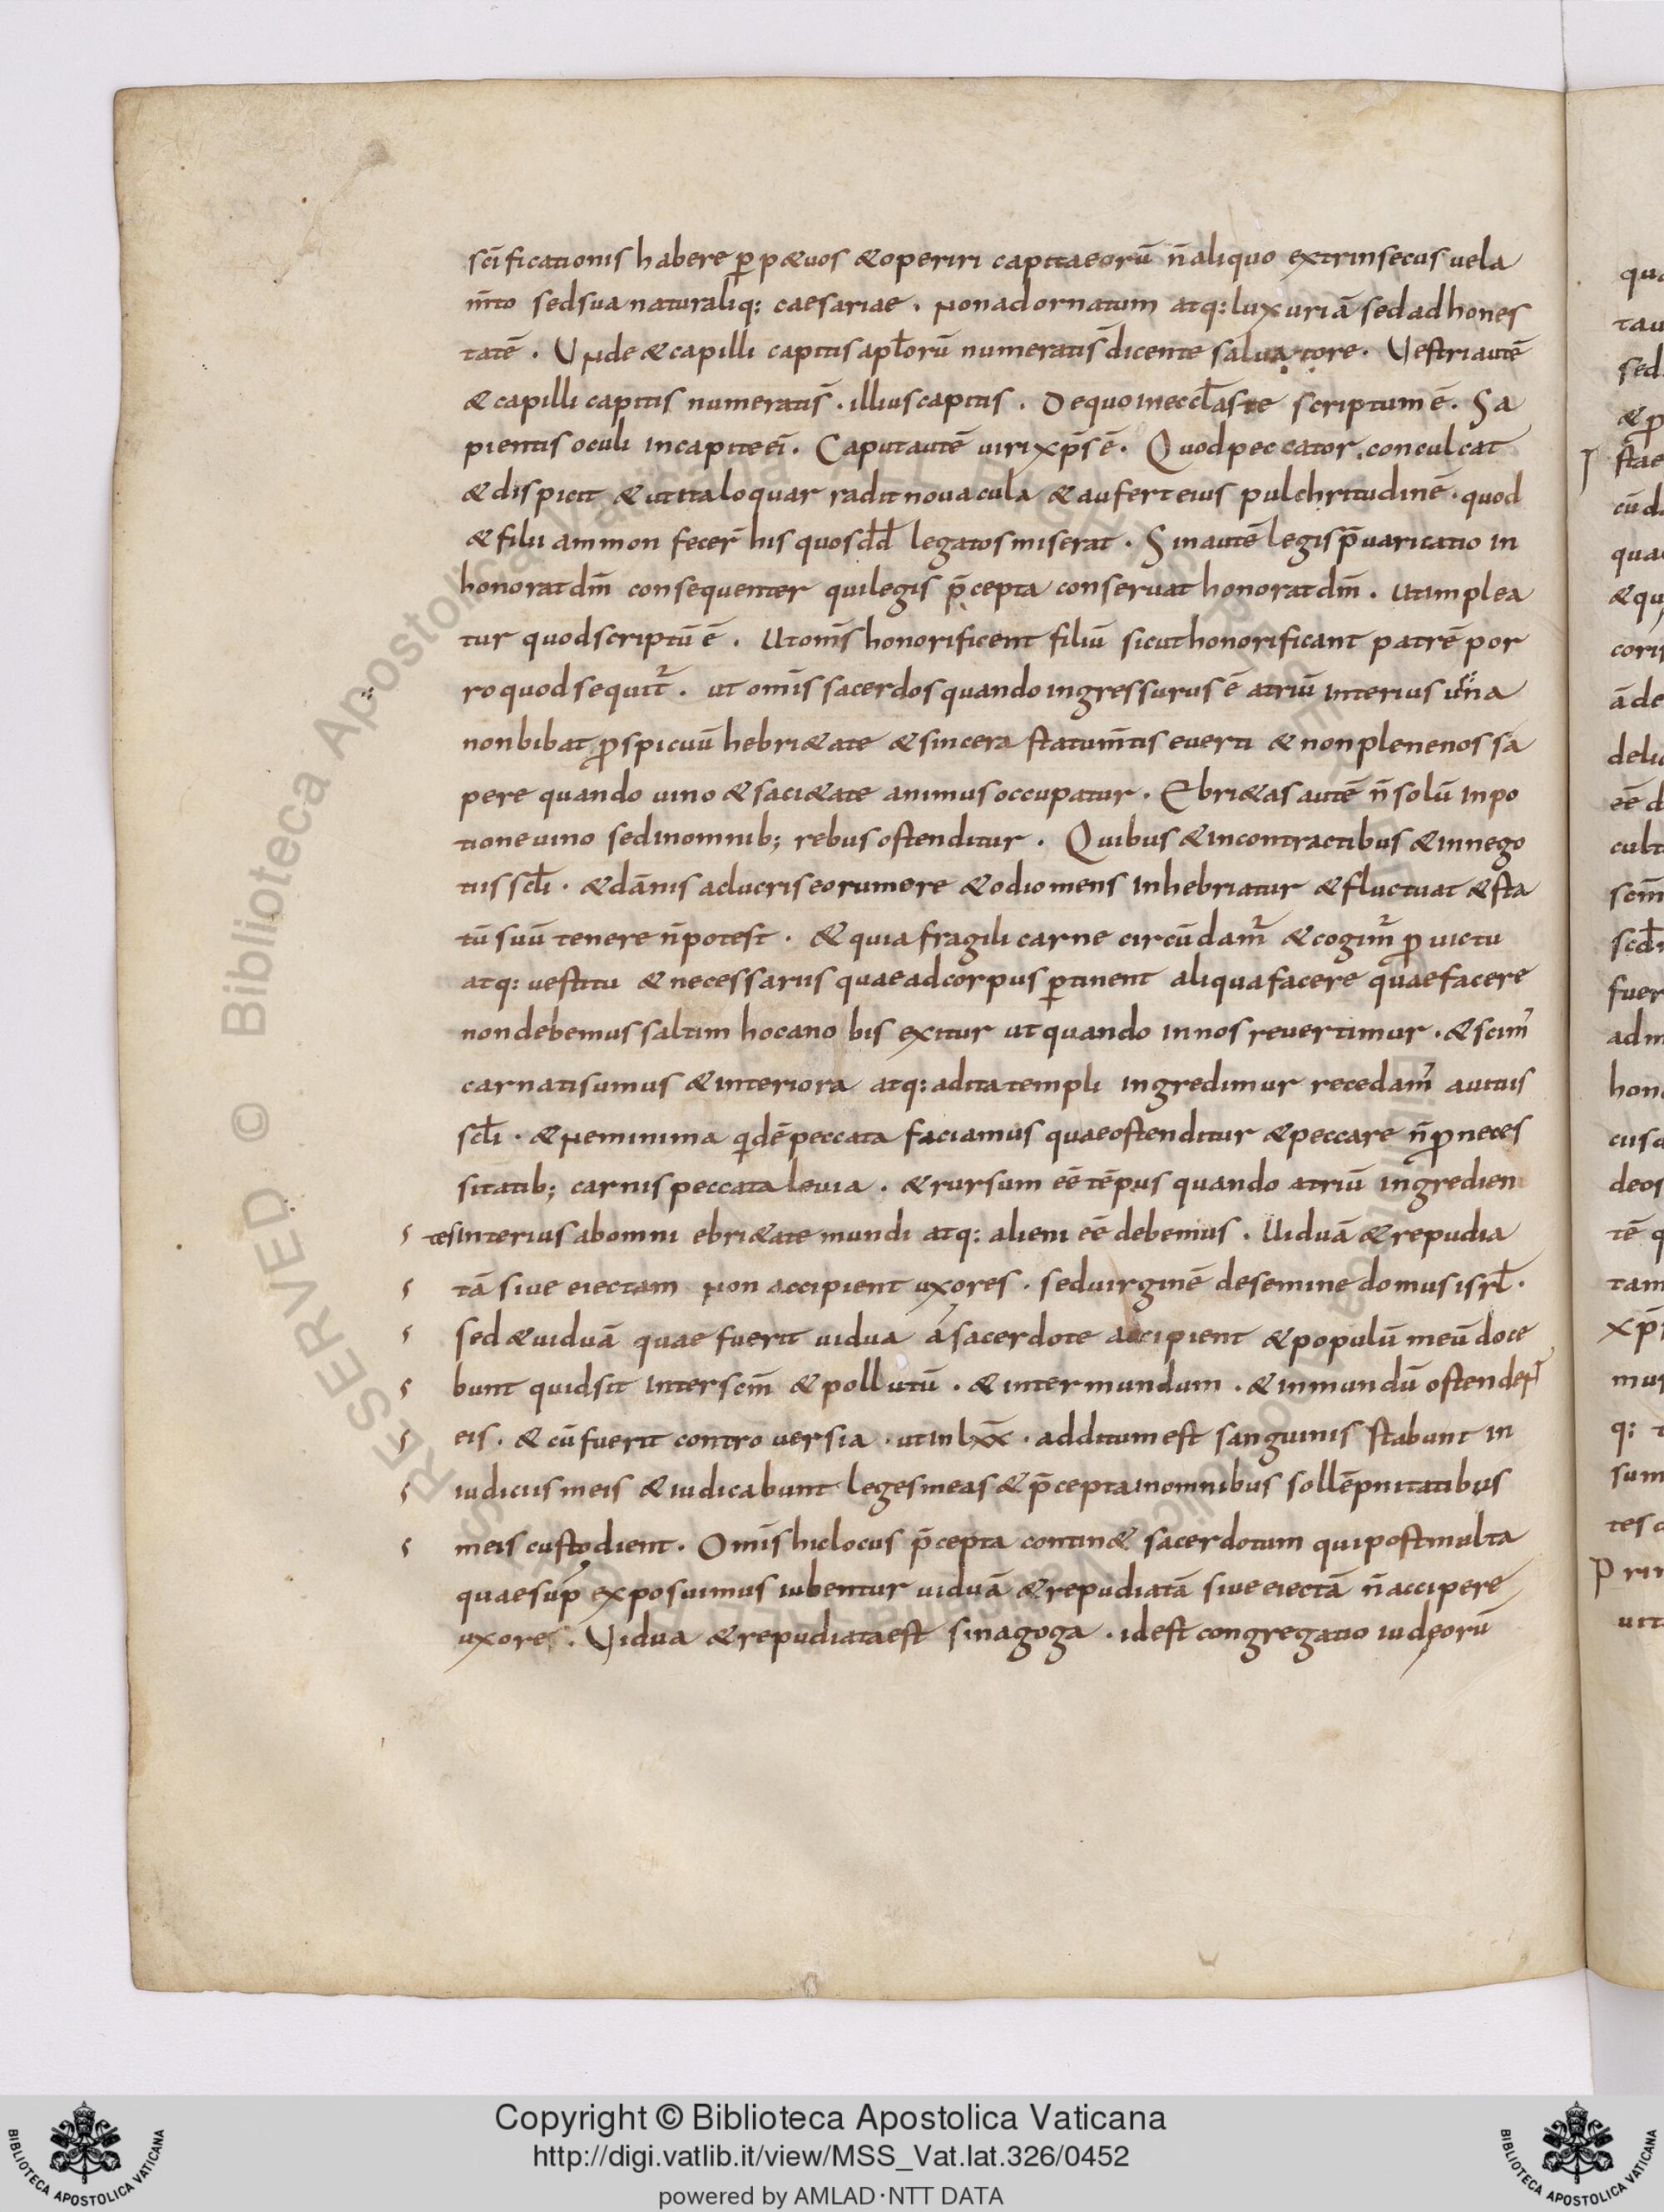 scīficationis habere ꝑpetuos & operiri capita eorū n̄ aliquo extrinsecus uela
m̄to sed sua naturaliq: caesariae . Non ad ornatum atq: luxuriā sed ad hones
tatē . Unde & capilli capitis apl̄orū numerati s̄ dicente saluatore . Vestri autē
& capilli capitis numerati s̄ . illius capitis . De quo in eccl̄aste scriptum ē . Sa
pientis oculi in capite ei̅ . Caput autē uiri xp̄s ē . Quod peccator conculcat
& dispicit & ut ita loquar radit nouacula & aufert eius pulchritudinē . quod
& filii ammon fecer̄ his quos dd̄ legatos miserat . Sin autē legis p̄uaricatio in
honorat dm̄ consequenter qui legis p̄cepta conseruat honorat dm̄ . Ut implea
tur quod scriptū ē . Ut om̄s honorificent filiū sicut honorificant patrē por
ro quod sequit̄ . ut omīs sacerdos quando ingressurus ē atriū interius uina
non bibat ꝓspicuū hebri&ate & sincera statum̄tis euerti & non plene nos sa
pere quando uino & saci&ate animus occupatur . Ebri&as autē n̄ solū in po
tione uino sed in omnib; rebus ostenditur . Quibus & in contractibus & in nego
tiis scl̄i . & dānis ac lucris eorum ore & odio mens inhebriatur & fluctuat & sta
tū suū tenere n̄ potest . & quia fragili carne circūdam̄ & cogim̄ ꝓ uictu
atq: uestitu & necessariis quae ad corpus ꝑtinent aliqua facere quae facere
non debemus saltim hoc a nobis exitur ut quando in nos reuertimur . & scim̄
carnati sumus & interiora atq: adita templi ingredimur recedam̄ a uitiis
scl̄i . & ne minima qdē peccata faciamus quae ostenditur & peccare n̄ ꝓ neces
sitatib; carnis peccata leuia . & rursum ēe tēpus quando atriū ingredien
tes interius ab omni ebri&ate mundi atq: alieni ēe debemus . Uiduā & repudia
tā siue eiectam non accipient uxores . sed uirginē de semine domus isrl̄ .
sed & uiduā quae fuerit uidua a sacerdote accipient & populū meū doce
bunt quid sit inter scm̄ & pollutū . & inter mundum . & inmundū ostender̄
eis . & cū fuerit controuersia . ut in lxx . additum est sanguinis stabunt in
iudiciis meis & iudicabunt leges meas & p̄cepta in omnibus sollēpnitatibus
meis custodient . Omīs hic locus p̄cepta contin& sacerdotum qui post multa
quae sup̄ exposuimus iubentur uiduā & repudiatā siue eiectā n̄ accipere
uxores . Vidua & repudiata est sinagoga . id est congregatio iudeorū
Copyright © Biblioteca Apostolica Vaticana
http://digi.vatlib.it/view/MSS_Vat.lat.326/0452
powered by AMLAD·NTT DATA